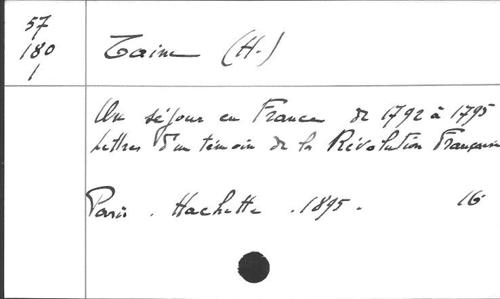 57
180
1
Taine (H.)
Un séjour en France de 1792 à 1795
Lettres d'un témoin de la Révolution Française
Paris . Hachette . 1895 . 16